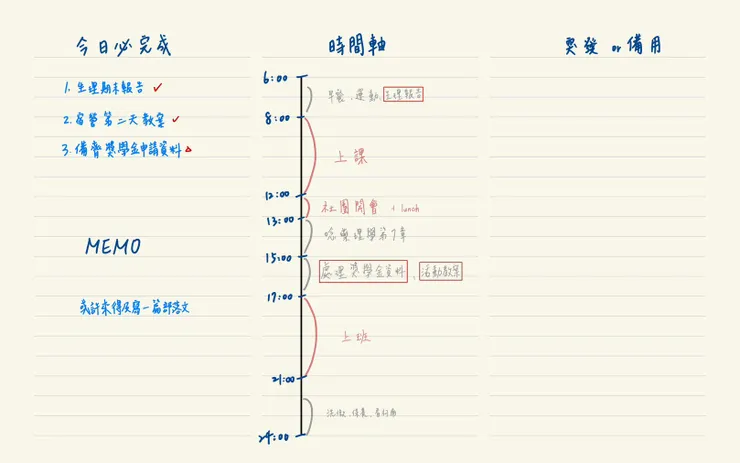 今日必完成
1. 生理期末報告 ✓
2. 宿營第二天教案 ✓
3. 備齊獎學金申請資料 △
MEMO
或許來得及寫一篇部落文
時間軸
6:00
早餐、運動、生理報告
8:00
上課
12:00
社團開會 + lunch
13:00
唸藥理學第7章
15:00
處理獎學金資料、活動教案
17:00
上班
21:00
洗澡、保養、看
24:00
突發 or 備用